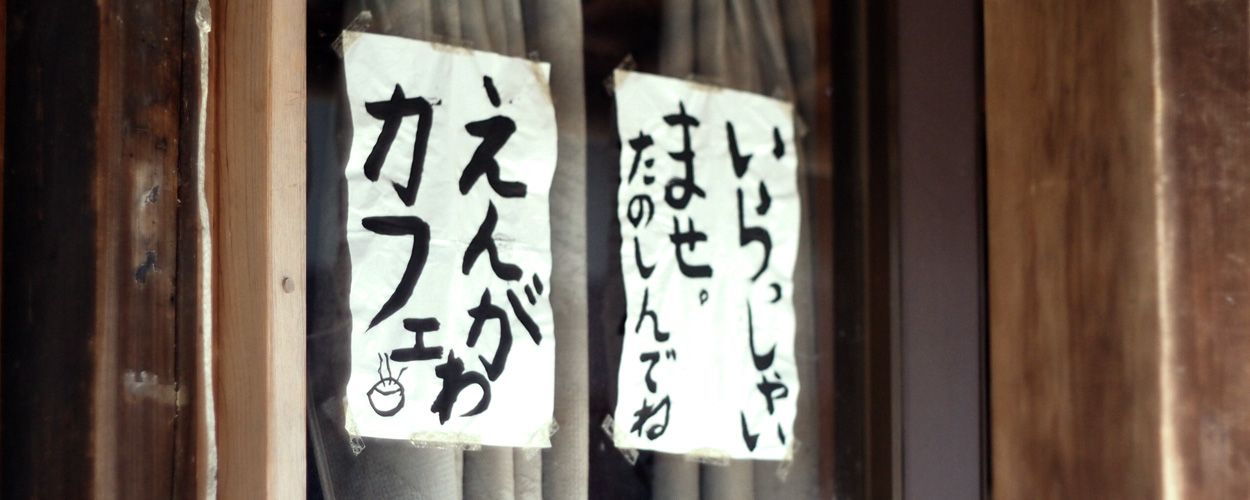 いらっしゃい
ませ。
たのしんでね
えんがわ
カフェ